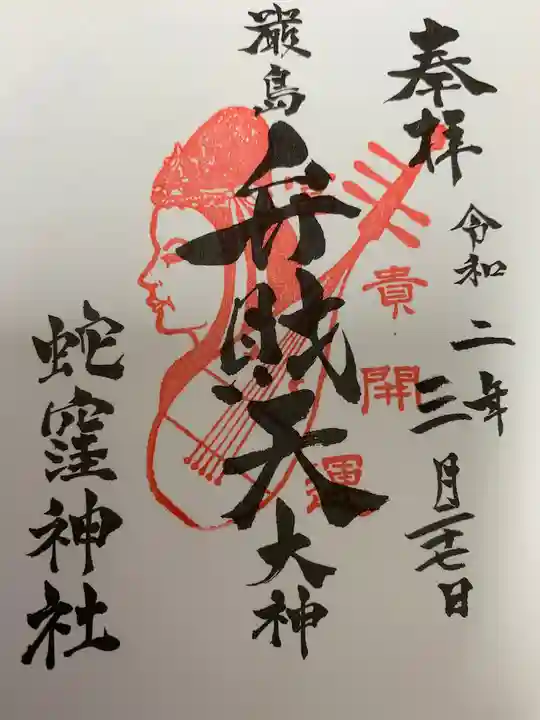 奉拝
令和二年
三月二十七日
貴
開
運
厳島
弁財天
大神
蛇窪神社